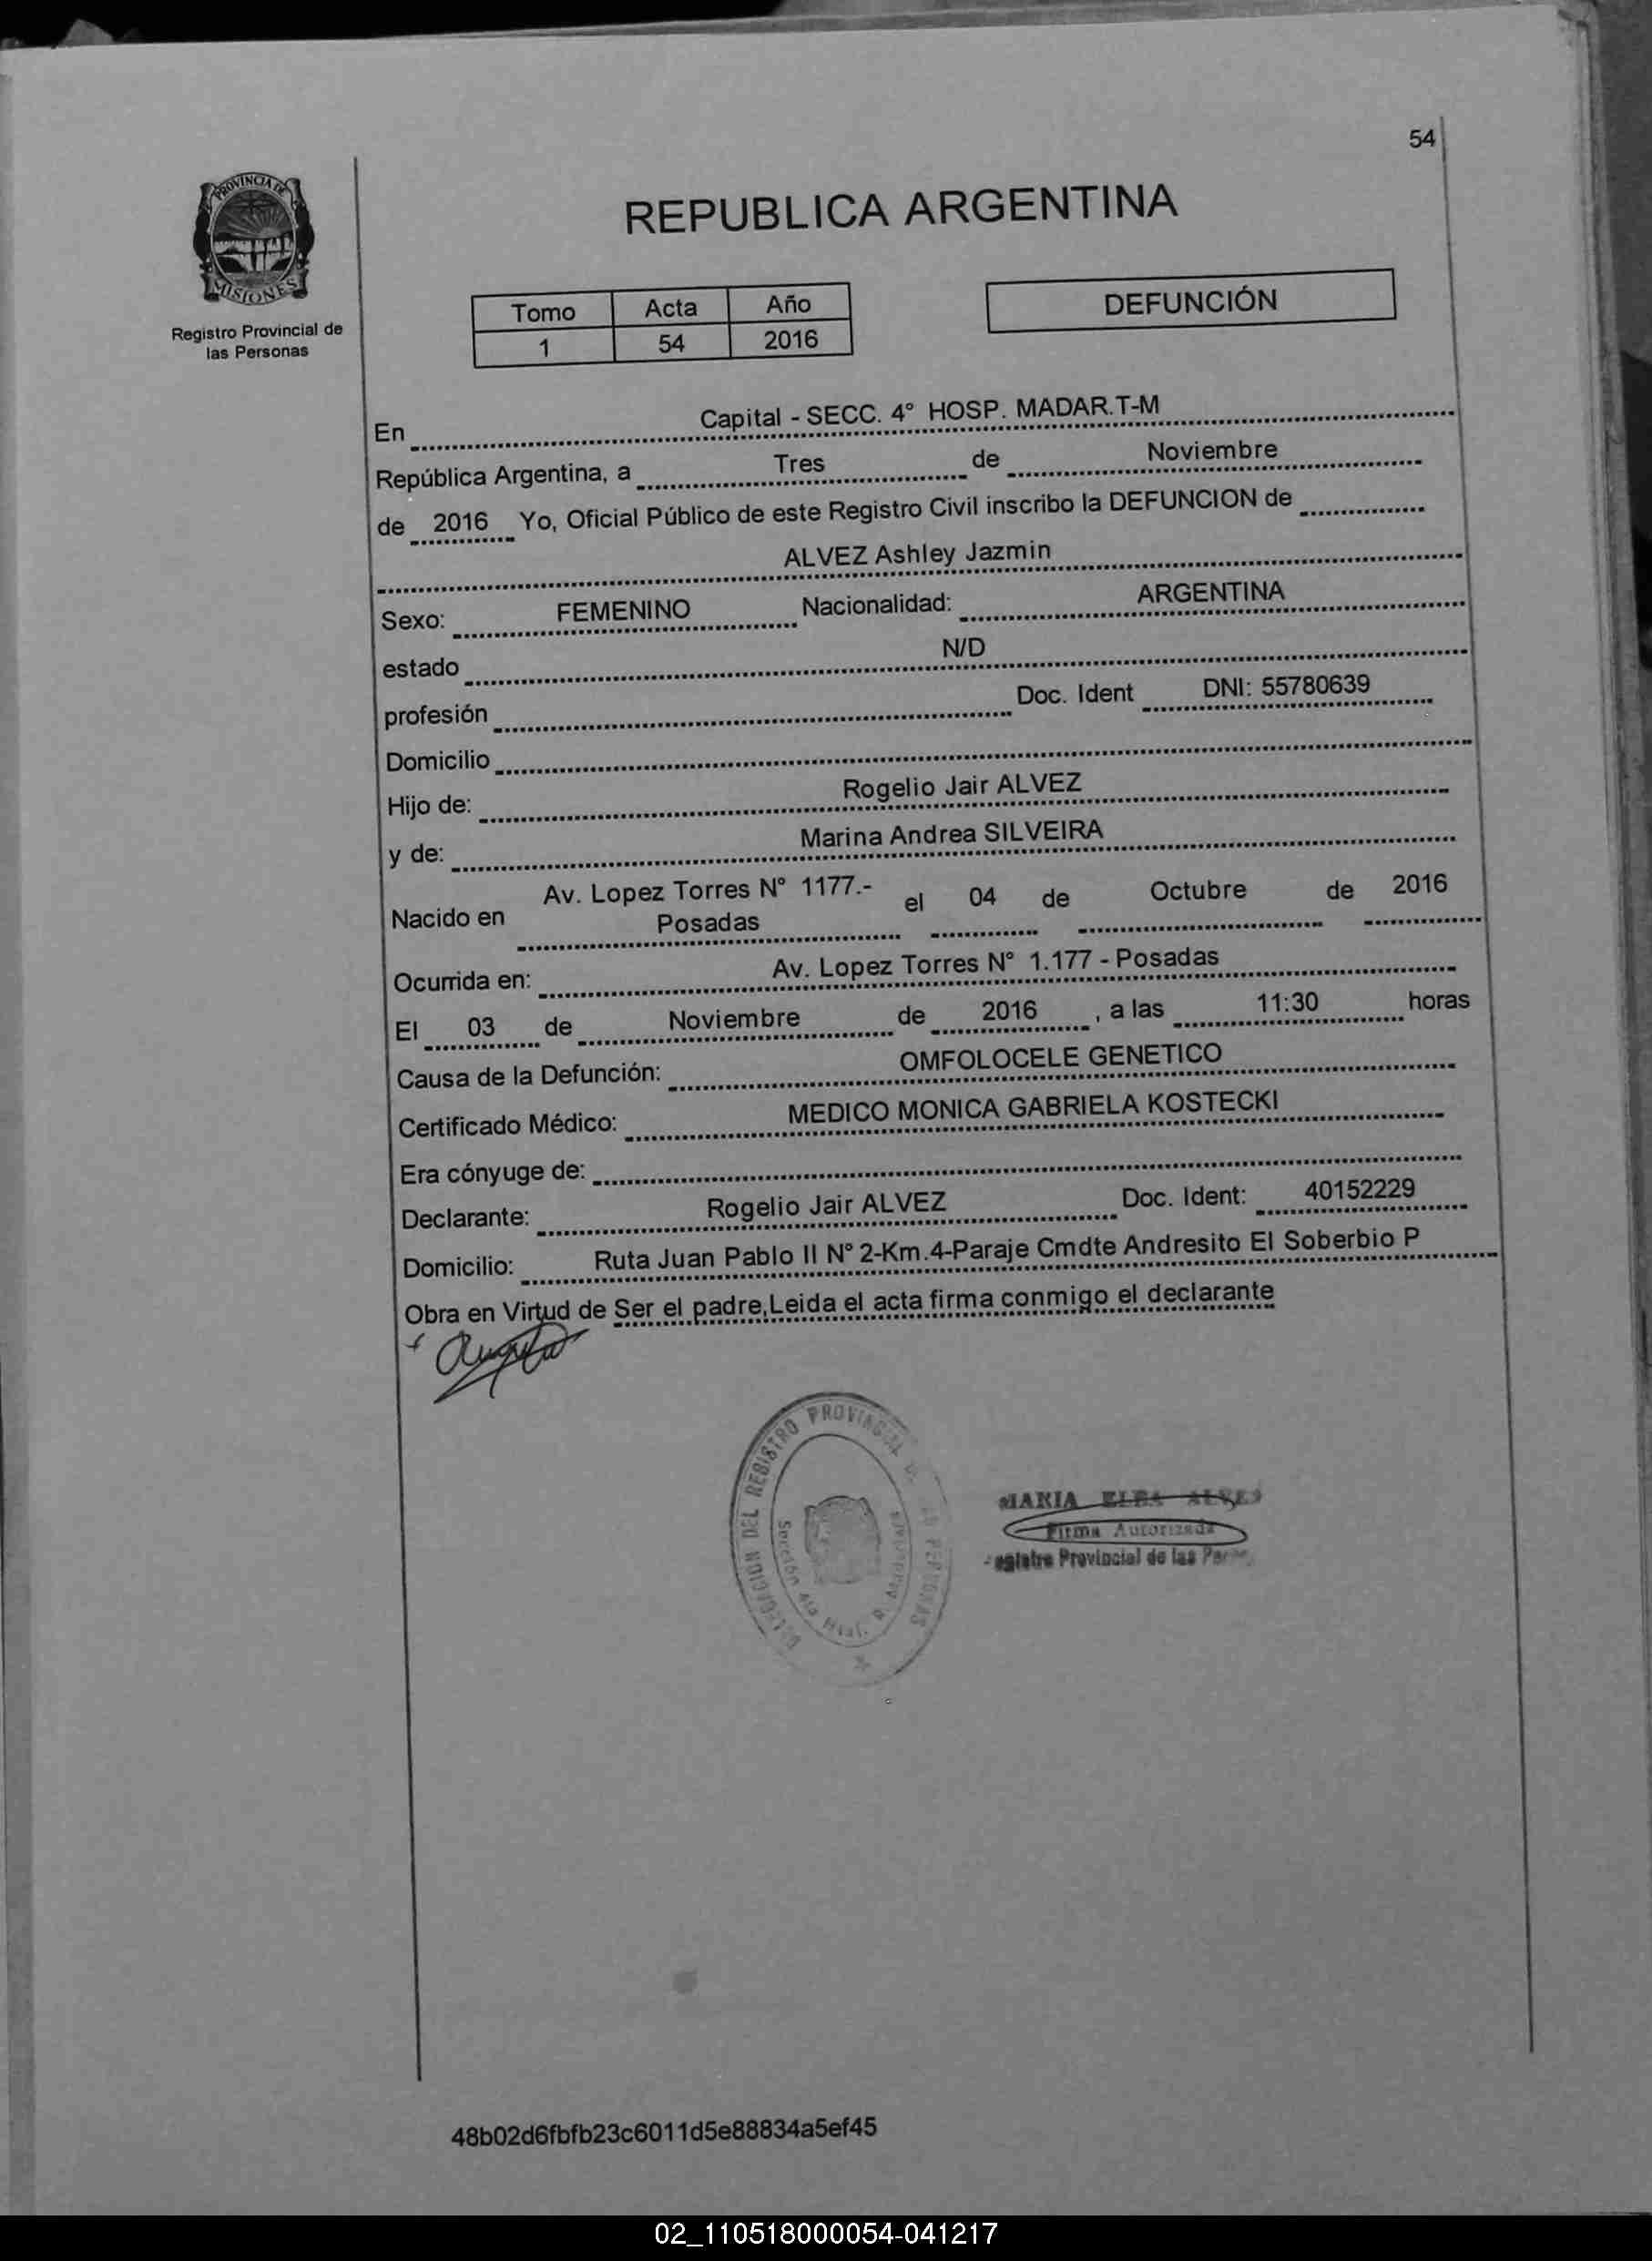 54
PROVINCIA DE
MISIONES
Registro Provincial de
las Personas
REPUBLICA ARGENTINA
Tomo Acta Año
1 54 2016
DEFUNCIÓN
En Capital - SECC. 4° HOSP. MADAR.T-M
República Argentina, a Tres de Noviembre
de 2016 Yo, Oficial Público de este Registro Civil inscribo la DEFUNCION de
ALVEZ Ashley Jazmin
Sexo: FEMENINO Nacionalidad: ARGENTINA
estado N/D
profesión Doc. Ident DNI: 55780639
Domicilio
Hijo de: Rogelio Jair ALVEZ
y de: Marina Andrea SILVEIRA
Av. Lopez Torres N° 1177.-
Nacido en Posadas el 04 de Octubre de 2016
Ocurrida en: Av. Lopez Torres N° 1.177 - Posadas
El 03 de Noviembre de 2016 , a las 11:30 horas
Causa de la Defunción: OMFOLOCELE GENETICO
Certificado Médico: MEDICO MONICA GABRIELA KOSTECKI
Era cónyuge de:
Declarante: Rogelio Jair ALVEZ Doc. Ident: 40152229
Domicilio: Ruta Juan Pablo II N° 2-Km.4-Paraje Cmdte Andresito El Soberbio P
Obra en Virtud de Ser el padre,Leida el acta firma conmigo el declarante
DELEGACION DEL REGISTRO PROVINCIAL DE LAS PERSONAS
Sección 4ta Hosp. R. Madariaga
MARIA ELBA ALVES
Firma Autorizada
Registro Provincial de las
48b02d6fbfb23c6011d5e88834a5ef45
02_110518000054-041217